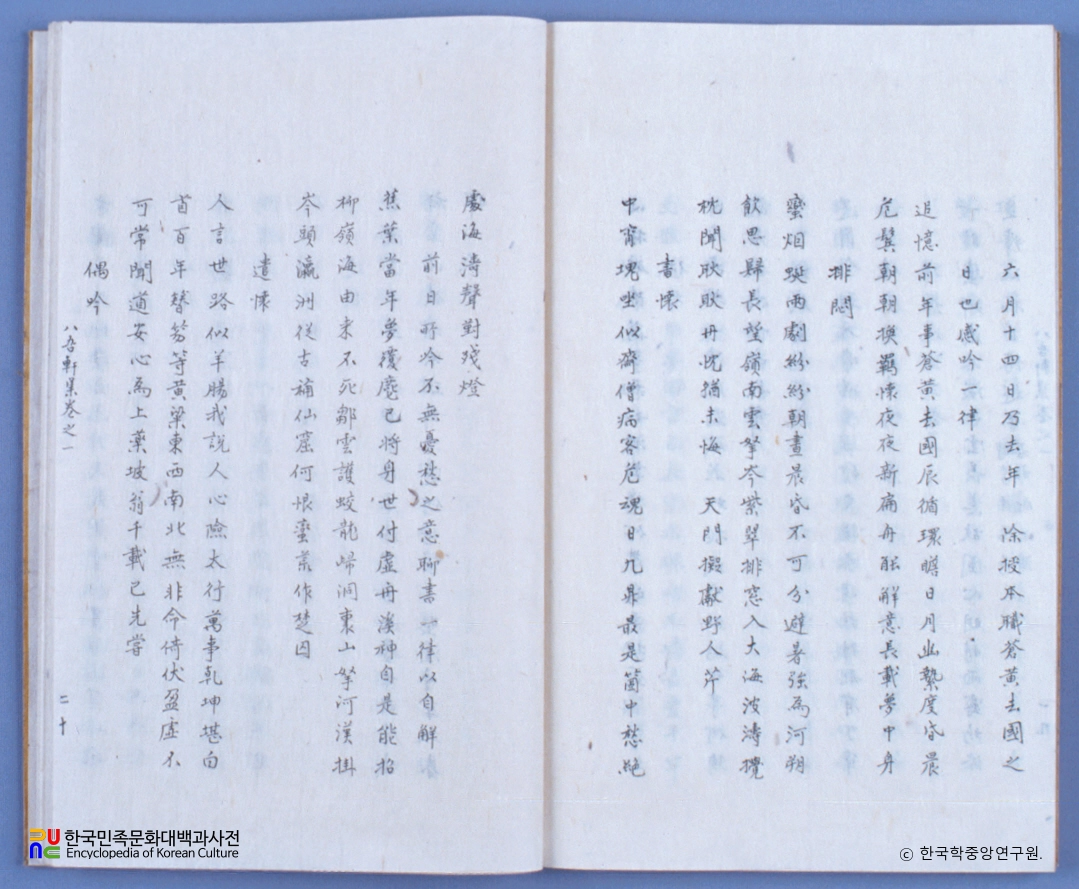 六月十四日乃去年 除授本職蒼黃去國之
日也感吟一律
追憶前年事蒼黃去國辰循環瞻日月幽縶度昏晨
危鬢朝朝換羈懷夜夜新扁舟能解意長載夢中身
排悶
蠻烟瘴雨劇紛紛朝晝晨昏不可分避暑強為河朔
飮思歸長望嶺南雲攀岑紫翠排窓入大海波濤攪
枕聞畎畝丹忱猶未悔 天門擬獻野人芹
書懷
中宵塊坐似齋僧病客危魂日凡鼎最是箇中愁絶
處海濤聲對殘燈
前日所吟不無憂愁之意聊書一律以自解
蕉葉當年夢覆麈已將身世付虛舟溪神自是能招
柳嶺海由來不死鄒雲護蛟龍歸洞裏山拏河漢掛
岑頭瀛洲從古補仙窟何恨蠻荒作楚囚
遣懷
人言世路似羊腸我說人心險太行萬事乾坤堪白
首百年簪笏等黃粱東西南北無非命倚伏盈虛不
可常聞道安心為上藥坡翁千載已先嘗
偶吟
八吾軒集卷之一
二十
한국민족문화대백과사전
Encyclopedia of Korean Culture
ⓒ 한국학중앙연구원.